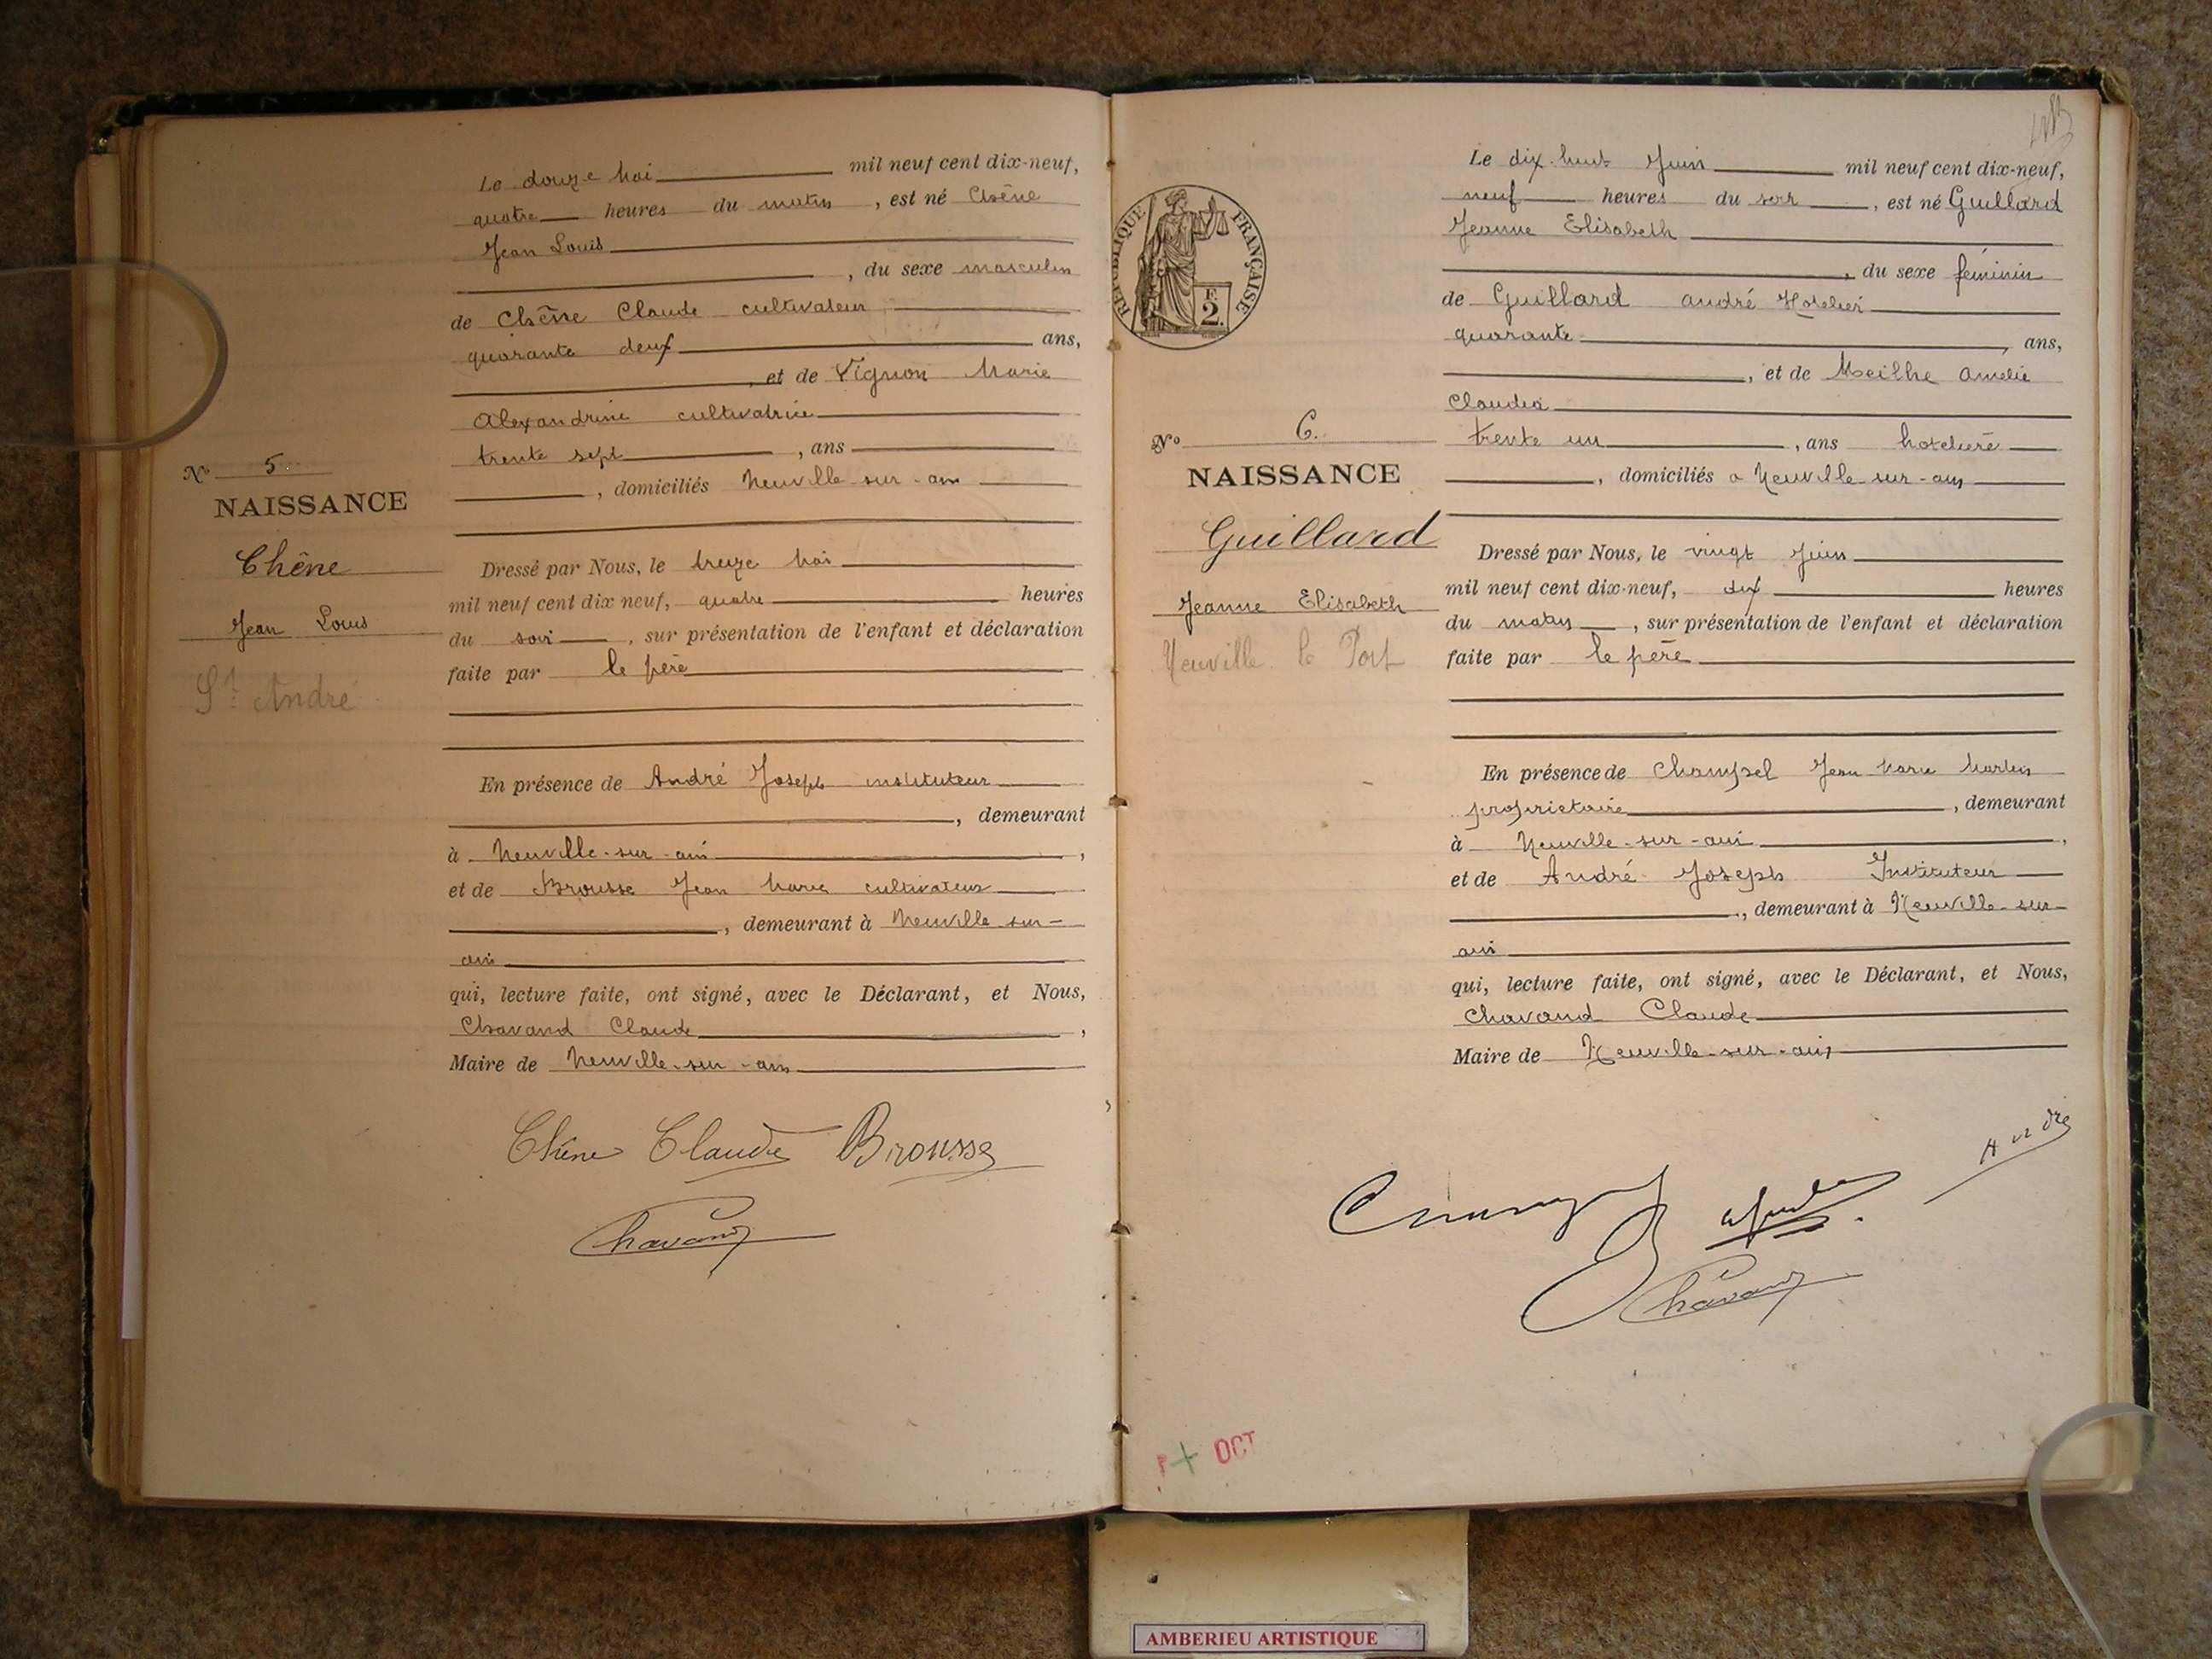 Le douze Mai mil neuf cent dix-neuf,
quatre heures du matin, est né Chêne
Jean Louis
, du sexe masculin
de Chêne Claude cultivateur
quarante deux ans,
, et de Vignon Marie
Alexandrine cultivatrice
trente sept, ans
, domiciliés Neuville-sur-ain
N° 5
NAISSANCE
Chêne
Jean Louis
St André
Dressé par Nous, le treize Mai
mil neuf cent dix neuf, quatre heures
du soir, sur présentation de l'enfant et déclaration
faite par le père
En présence de André Joseph instituteur
, demeurant
à Neuville-sur-ain,
et de Brousse Jean Marie cultivateur
, demeurant à Neuville-sur-
ain
qui, lecture faite, ont signé, avec le Déclarant, et Nous,
Chavand Claude,
Maire de Neuville-sur-ain
Chêne Claude Brousse
Chavand
RÉPUBLIQUE FRANÇAISE
F.
2.
Le dix-huit Juin mil neuf cent dix-neuf,
neuf heures du soir, est né Guillard
Jeanne Elisabeth
, du sexe féminin
de Guillard andré Hotelier
quarante, ans,
, et de Meilhe Amelie
Claudia
trente un, ans hoteliere
, domiciliés a Neuville-sur-ain
N° 6.
NAISSANCE
Guillard
Jeanne Elisabeth
Neuville le Port
Dressé par Nous, le vingt Juin
mil neuf cent dix-neuf, dix heures
du matin, sur présentation de l'enfant et déclaration
faite par le père
En présence de Champel Jean Marie Martin
proprietaire, demeurant
à Neuville-sur-ain,
et de André Joseph Instituteur
, demeurant à Neuville-sur-
ain
qui, lecture faite, ont signé, avec le Déclarant, et Nous,
Chavand Claude
Maire de Neuville-sur-ain
André
Chavand
OCT
AMBERIEU ARTISTIQUE